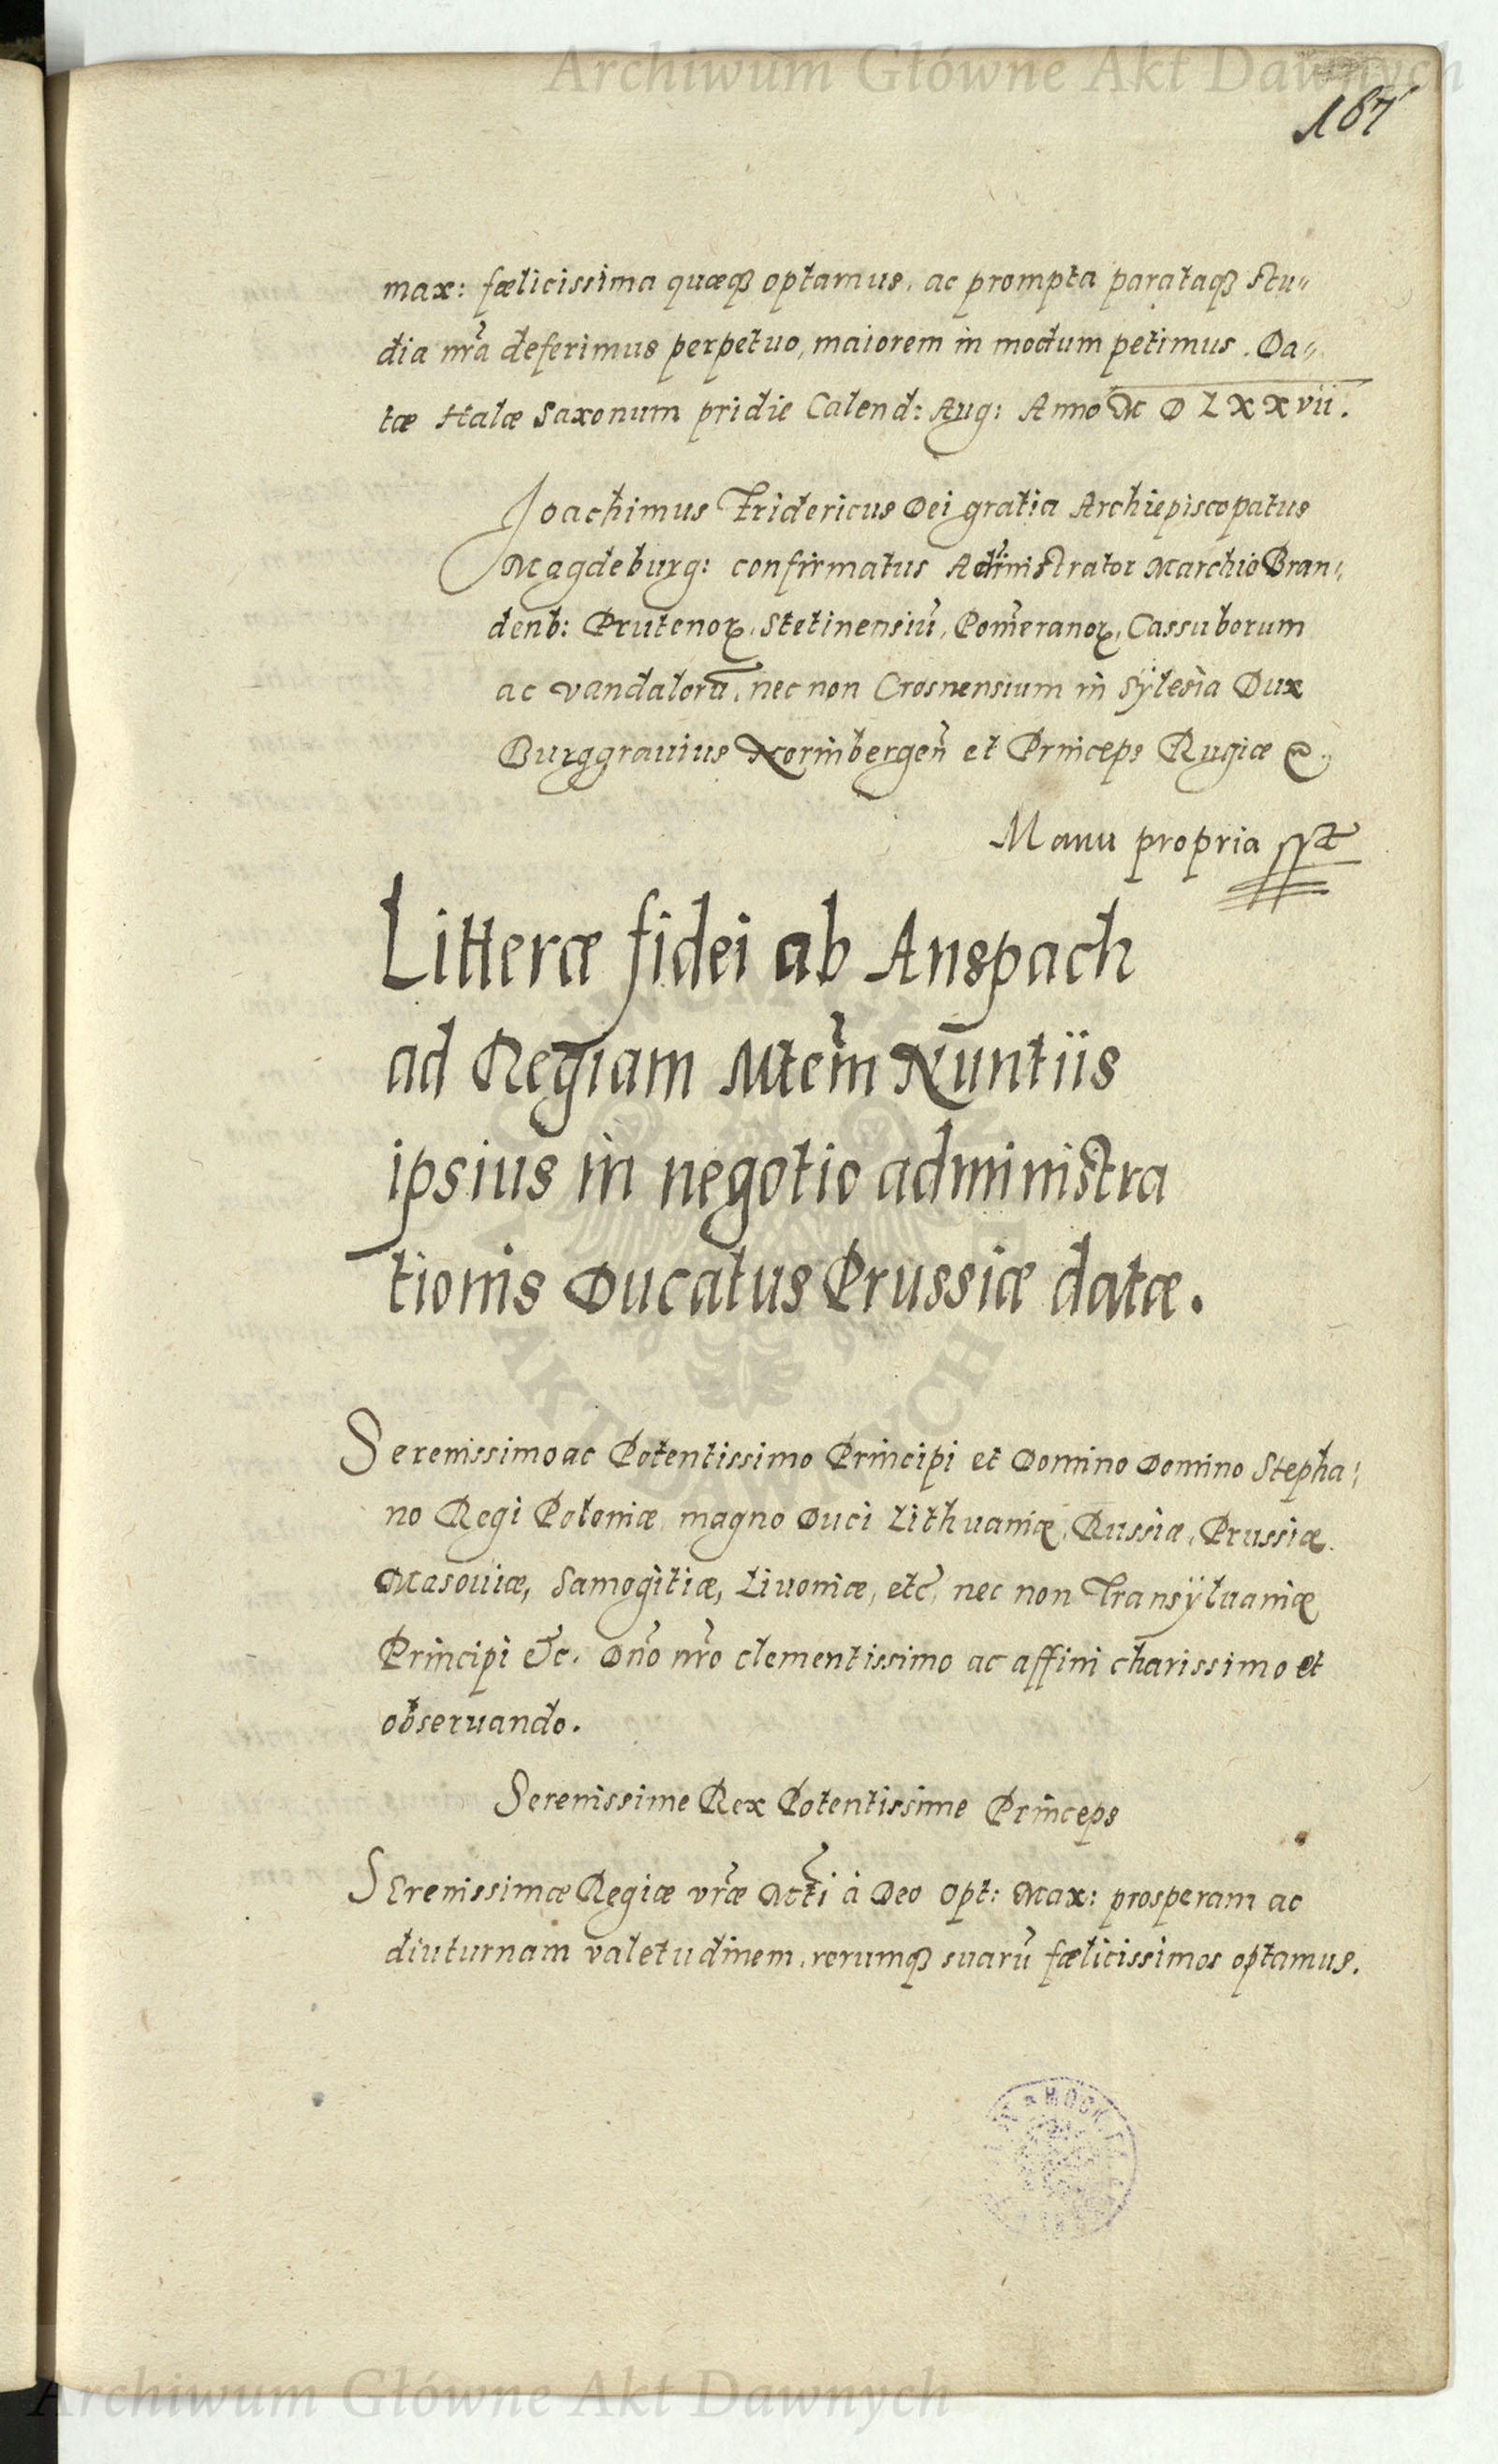 Archiwum Główne Akt Dawnych
167
max: fœlicissima quæqꝫ optamus, ac prompta parataqꝫ stu〃
dia nr̃a deferimus perpetuo, maiorem in modum petimus. Da〃
tæ Halæ Saxonum pridie Calend: Aug: Anno M D LXXvii.
Joachimus Fridericus Dei gratia Archiepiscopatus
Magdeburg: confirmatus Adm̃inistrator Marchio Bran〃
denb: Prutenoꝝ, Stetinensiũ, Pom̃eranoꝝ, Cassuborum
ac vandalorũ, nec non Crosnensium in Sÿlesia Dux
Burggrauius Norinbergeñ et Princeps Rugiæ &.
Manu propria sst
Litteræ fidei ab Anspach
ad Regiam Mtem̃ Nuntiis
ipsius in negotio administra
tionis Ducatus Prussiæ datæ.
Serenissimo ac Potentissimo Principi et Domino Domino Stepha:
no Regi Poloniæ, magno Duci Lithuaniæ, Russiæ, Prussiæ.
Masouiæ, Samogitiæ, Liuoniæ, etc̃, nec non Transÿluaniæ
Principi &c. Dño nr̃o clementissimo ac affini charissimo et
obseruando.
Serenissime Rex Potentissime Princeps
SErenissimæ Regiæ vr̃æ Mt̃i à Deo Opt: Max: prosperam ac
diuturnam valetudinem, rerumqꝫ suarũ fœlicissimos optamus.
ARCHIWUM GŁÓWNE AKT DAWNYCH
Archiwum Główne Akt Dawnych